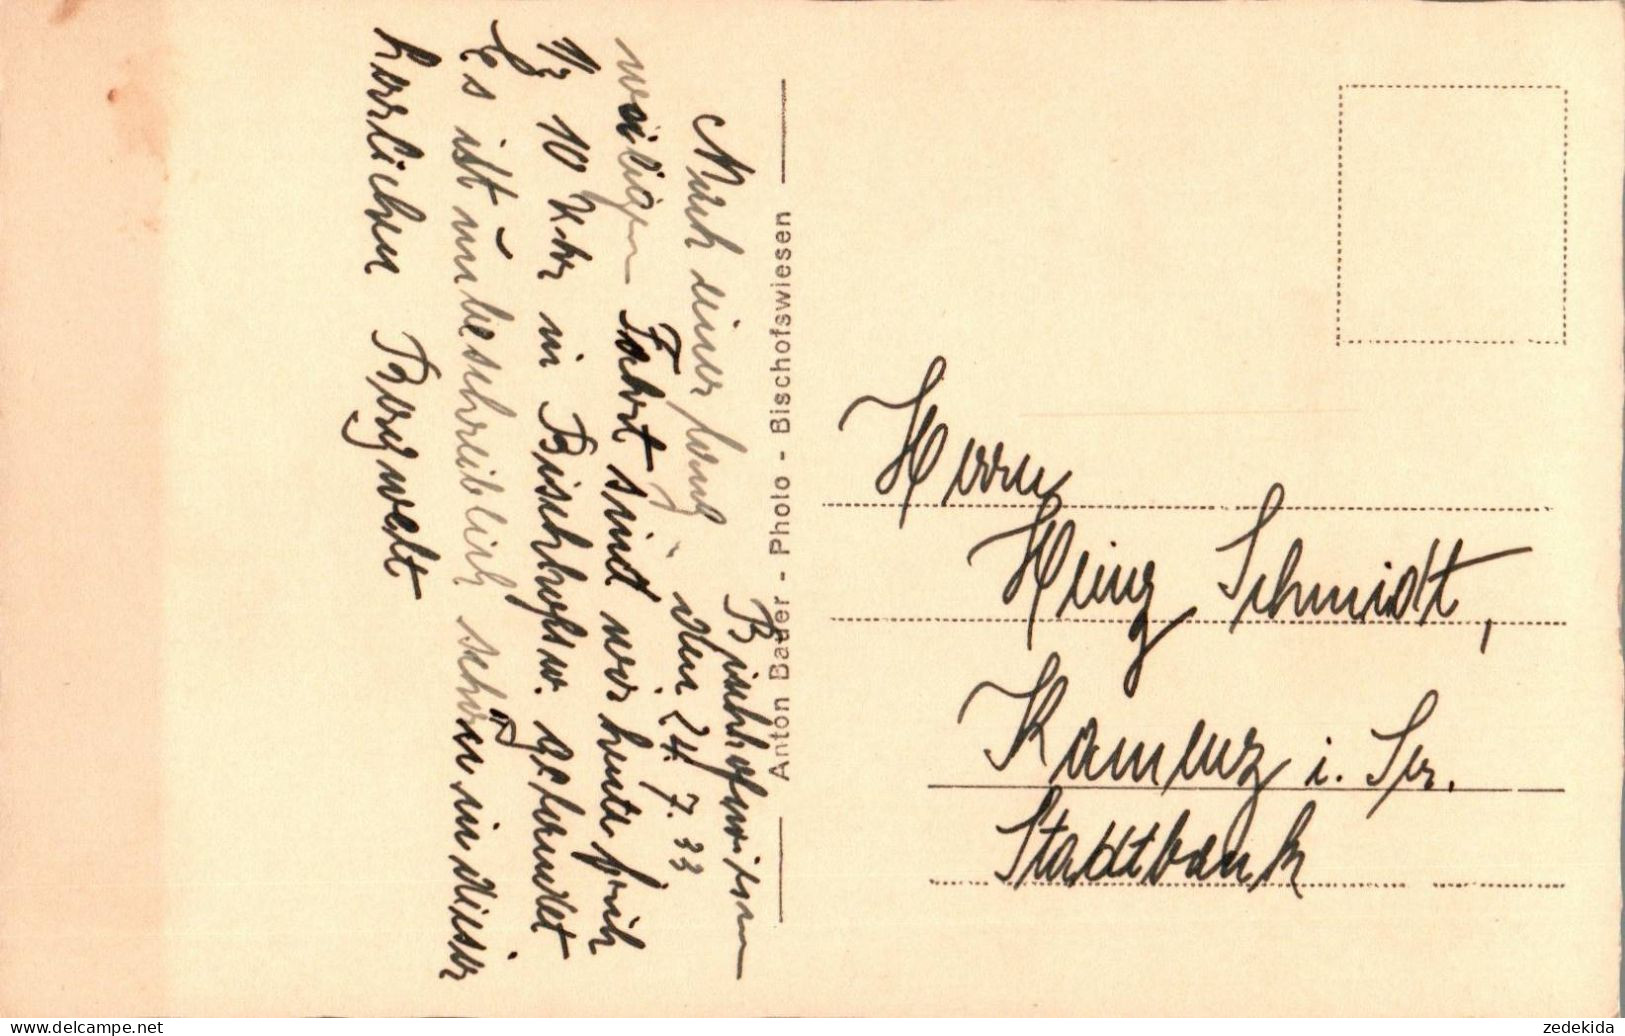 Bischhofswiesen
den 24. 7. 33
Nach einer lang-
weiligen Fahrt sind wir heute früh
1/2 10 Uhr in Bischhofsw. gelandet
Es ist unbeschreiblich schön in dieser
herrlichen Bergwelt
Anton Bauer - Photo - Bischofswiesen
Herrn
Heinz Schmidt,
Kamenz i. Sa.
Stadtbank
www.delcampe.net
zedekida